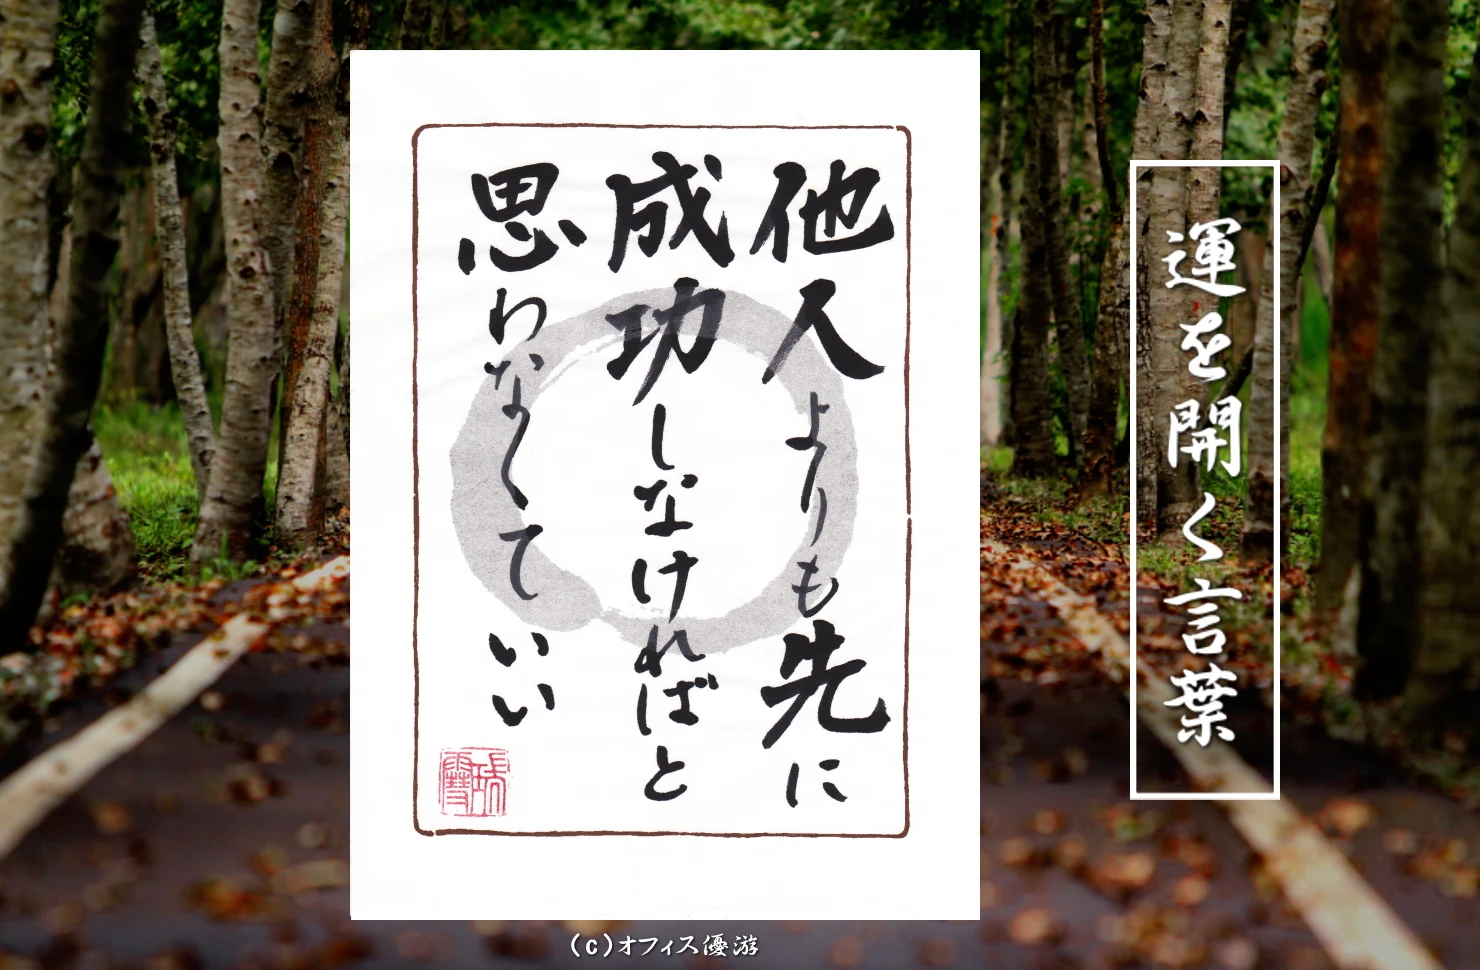 他人よりも先に
成功しなければと
思わなくていい
運を開く言葉
(c)オフィス優游